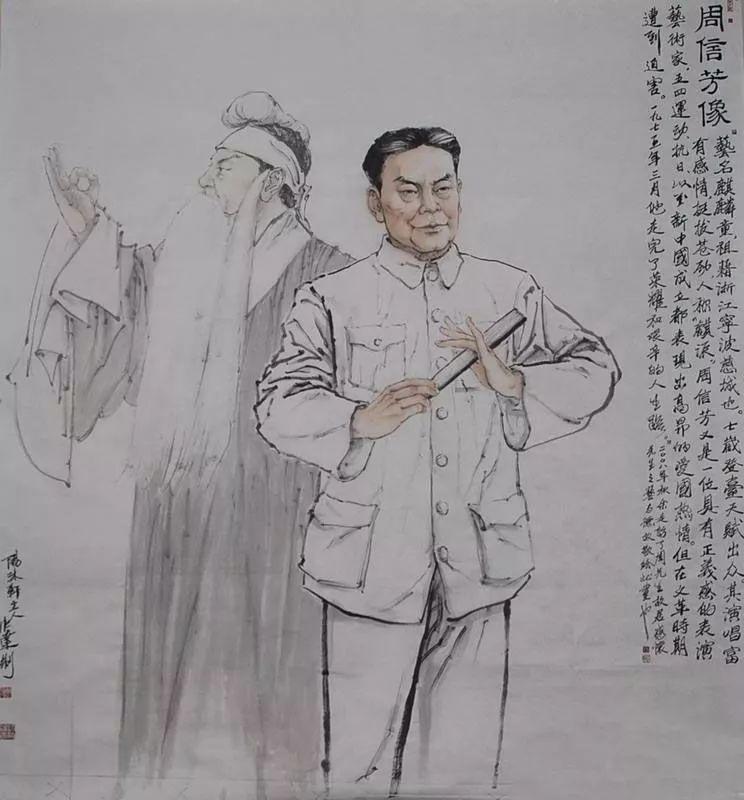 周信芳像
藝名麒麟童,祖籍浙江寧波慈城也。七歲登臺天賦出众其演唱富
有感情挺拔苍劲人称"麒派"。周信芳又是一位具有正義感的表演
藝術家,五四運动、抗日、以至新中國成立都表現出高昂的愛國热情。但在文革時期
遭到迫害。一九七五年三月他走完了荣耀和艰辛的人生路。
二〇〇八年秋余走訪了周先生故居感懷
先生之藝与德故敬繪此畫也
軒主人